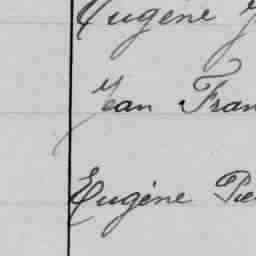 Eugène J
Jean Fran
Eugène Pie